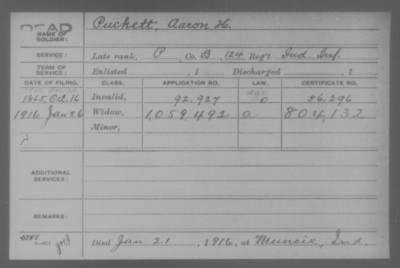 DEAD
NAME OF SOLDIER: Puckett, Aaron H.
SERVICE: Late rank, P, Co. B, 124 Reg't Ind. Inf.
TERM OF SERVICE: Enlisted , 1 Discharged , 1
DATE OF FILING. CLASS. APPLICATION NO. LAW. CERTIFICATE NO.
1865, Oct. 16 Invalid, 92.927 0 86,296
1916 Jan 26 Widow, 1,059,492 a 804,132
Minor,
ADDITIONAL SERVICES:
REMARKS:
Died Jan 21, 1916, at Muncie, Ind.